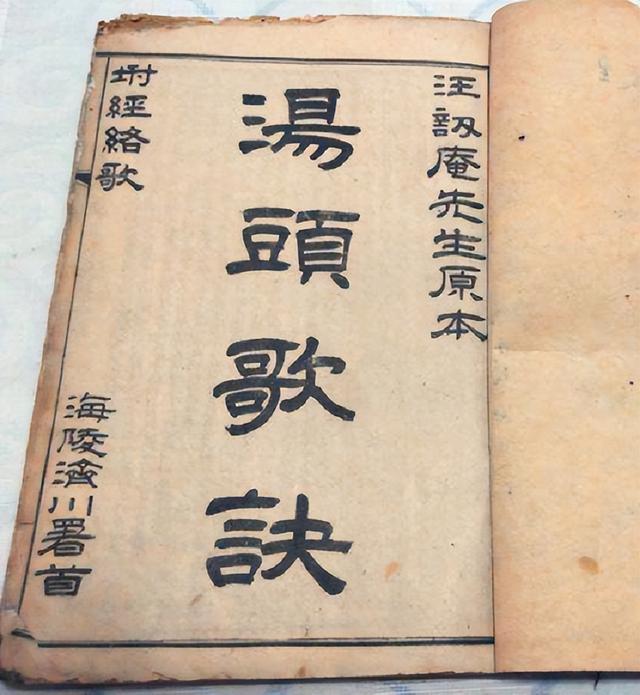 汪訒庵先生原本
湯頭歌訣
坿經絡歌
海陵濟川署首